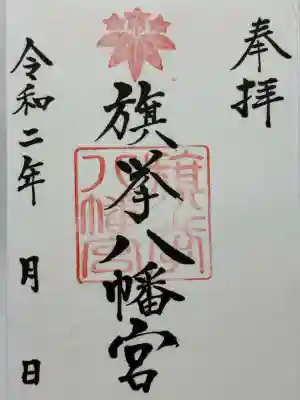 奉拝
旗挙八幡宮
令和二年 月 日
旗挙八幡宮